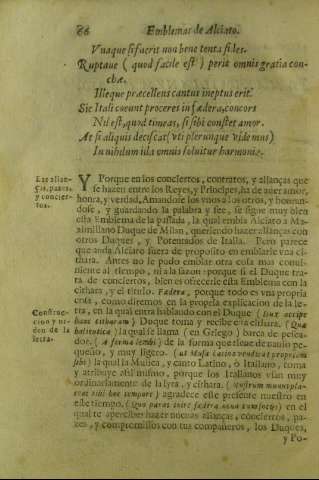 86 Emblemas de Alciato.
Vnaque si faerit non bene tenta fides.
Ruptaue (quod facile est) perit omnis gratia con-
chæ.
Illeque præcellens cantus ineptus erit.
Sic Itali coeunt proceres in fædera, concors
Nil est, quod timeas, si sibi constet amor.
At si aliquis desciscat (vti plerunque videmus)
In nihilum illa omnis soluitur harmonia.
Las alian-
ças, pazes,
y concier-
tos.
Y Porque en los conciertos, contratos, y alianças que
se hazen entre los Reyes, y Principes, ha de auer amor,
honra, y verdad, Amandose los vnos a los otros, y honran-
dose, y guardando la palabra y fee, se sigue muy bien
esta Emblema de la passada, la qual embia Alciato a Ma-
ximiliano Duque de Milan, queriendo hazer alianças con
otros Duques, y Potentados de Italia. Pero parece
que anda Alciato fuera de proposito en embiarle vna ci-
thara. Antes no le pudo embiar otra cosa mas conui-
niente al tiempo, ni a la razon: porque si el Duque tra-
ta de conciertos, bien es ofrecerle esta Emblema con la
cithara, y el titulo. Fædera, porque todo es vna propria
cosa, como diremos en la propria explicacion de la le-
tra, en la qual entra hablando con el Duque (Dux accipe
hanc citharam) Duque toma y recibe esta cithara. (Quæ
halieutica) la qual se llama (en Griego) barca de pesca-
dor. (A forma lembi) de la forma que tiene de nauio pe-
queño, y muy ligero. (at Musa Latina vendicat propriam
sibi) la qual la Musica, y canto Latino, ò Italiano, toma
y atribuye assi mismo, porque los Italianos vsan muy
ordinariamente de la lyra, y cithara. (nostrum munus pla-
ceat tibi hoc tempore) agradece este presente nuestro en
este tiempo. (Quo paras inire fædera noua cum socijs) en el
qual te apercibes hazer nueuas alianças, conciertos, pa-
zes, y compremissos con tus compañeros, los Duques,
y Po-
Construc-
cion y or-
den de la
letra.